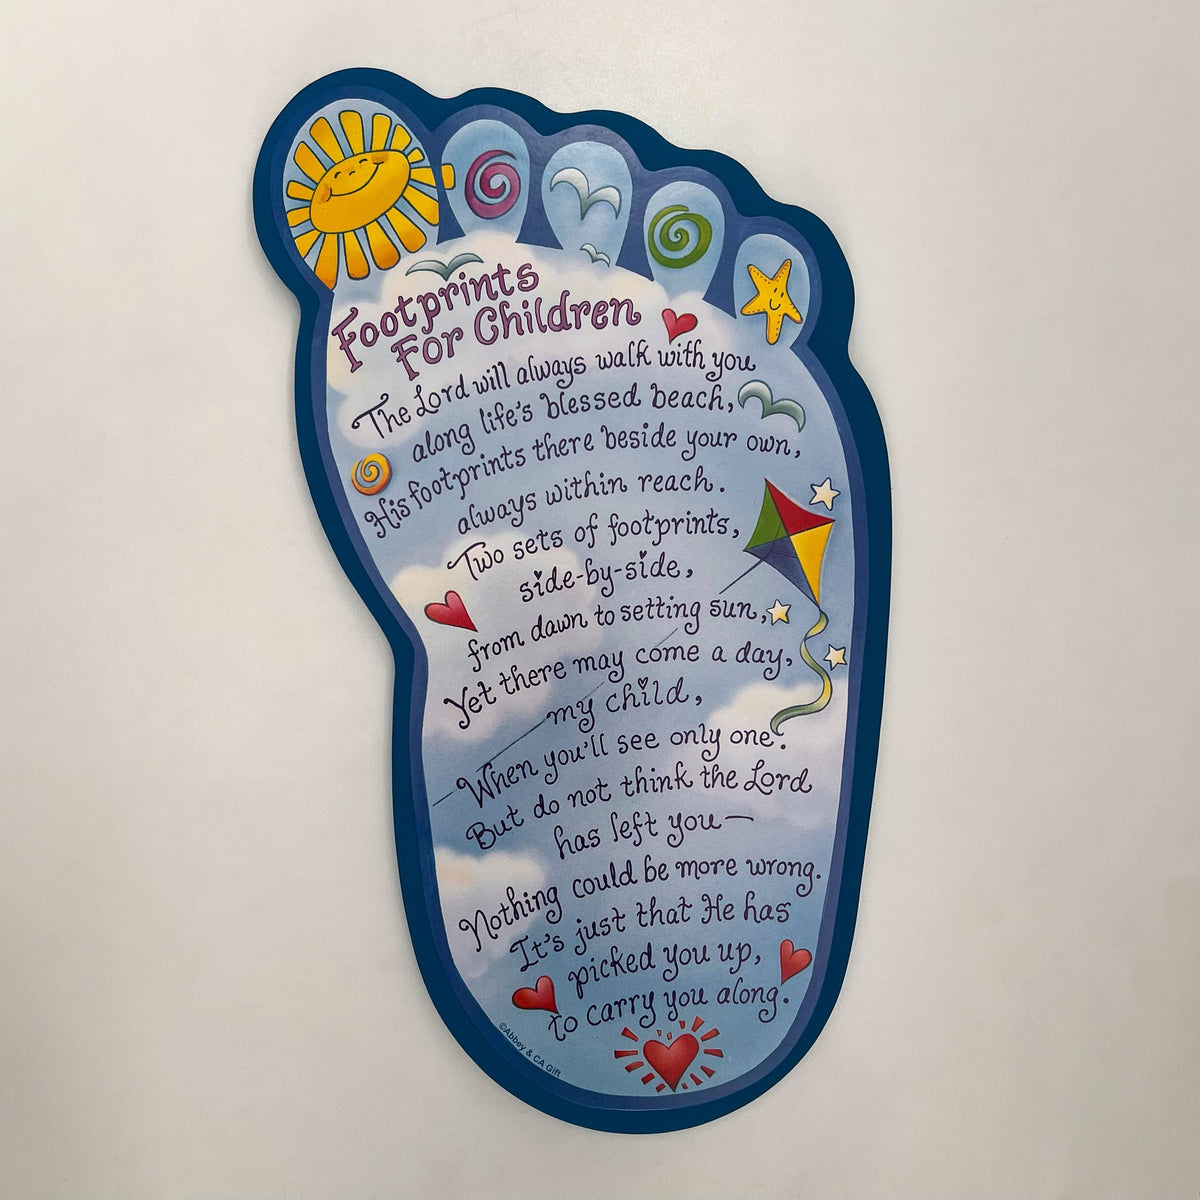 Footprints
For Children
The Lord will always walk with you
along life's blessed beach,
His footprints there beside your own,
always within reach.
Two sets of footprints,
side-by-side,
from dawn to setting sun,
Yet there may come a day,
my child,
When you'll see only one.
But do not think the Lord
has left you—
Nothing could be more wrong.
It's just that He has
picked you up,
to carry you along.
©Abbey & CA Gift